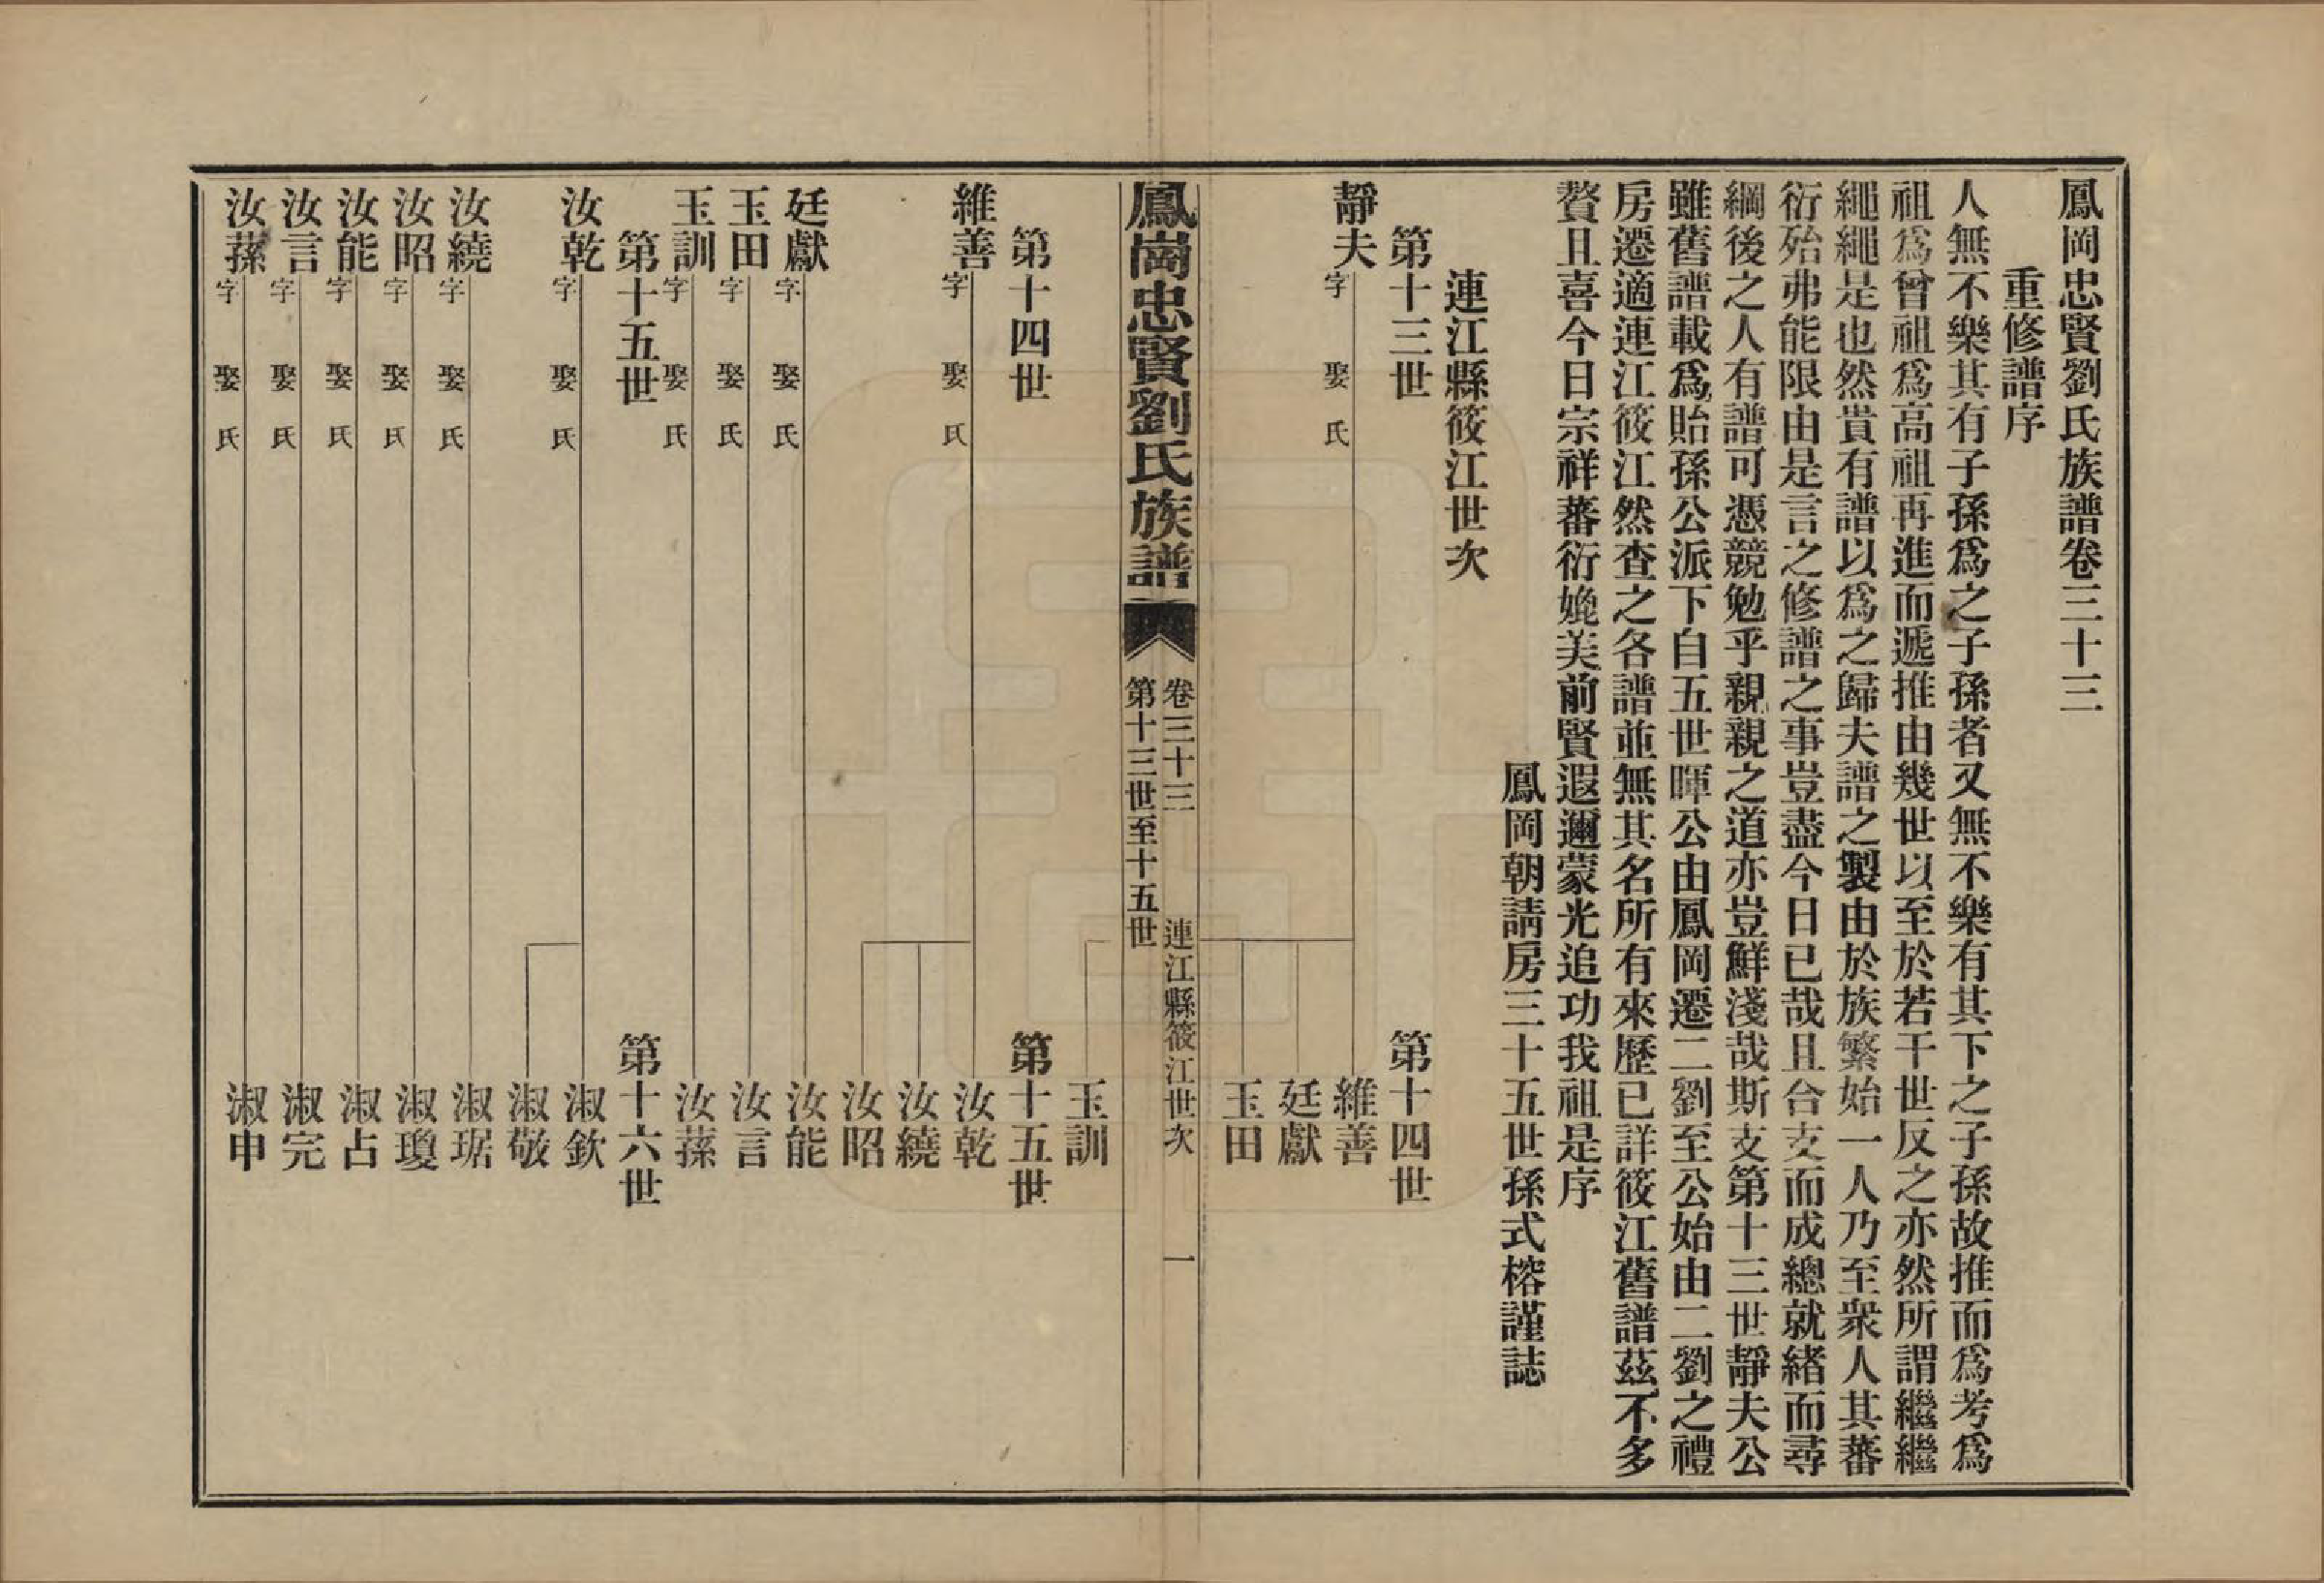 鳳岡忠賢劉氏族譜卷三十三
重修譜序
人無不樂其有子孫爲之子孫者又無不樂有其下之子孫故推而爲考爲
祖爲曾祖爲高祖再進而遞推由幾世以至於若干世反之亦然所謂繼繼
繩繩是也然貴有譜以爲之歸夫譜之製由於族繁始一人乃至衆人其蕃
衍殆弗能限由是言之修譜之事豈盡今日已哉且合支而成總就緒而尋
綱後之人有譜可憑競勉乎親親之道亦豈鮮淺哉斯支第十三世靜夫公
雖舊譜載爲貽孫公派下自五世暉公由鳳岡遷二劉至公始由二劉之禮
房遷適連江筱江然查之各譜並無其名所有來歷已詳筱江舊譜茲不多
贅且喜今日宗祥蕃衍媲美前賢遐邇蒙光追功我祖是序
鳳岡朝請房三十五世孫式榕謹誌
連江縣筱江世次
第十三世 第十四世
靜夫 字 娶 氏 維善
廷獻
玉田
鳳崗忠賢劉氏族譜
卷三十三 連江縣筱江世次 一
第十三世至十五世
玉訓
第十四世 第十五世
維善 字 娶 氏 汝乾
汝繞
汝昭
廷獻 字 娶 氏 汝能
玉田 字 娶 氏 汝言
玉訓 字 娶 氏 汝蓀
第十五世 第十六世
汝乾 字 娶 氏 淑欽
淑敬
汝繞 字 娶 氏 淑琚
汝昭 字 娶 氏 淑瓊
汝能 字 娶 氏 淑占
汝言 字 娶 氏 淑完
汝蓀 字 娶 氏 淑申